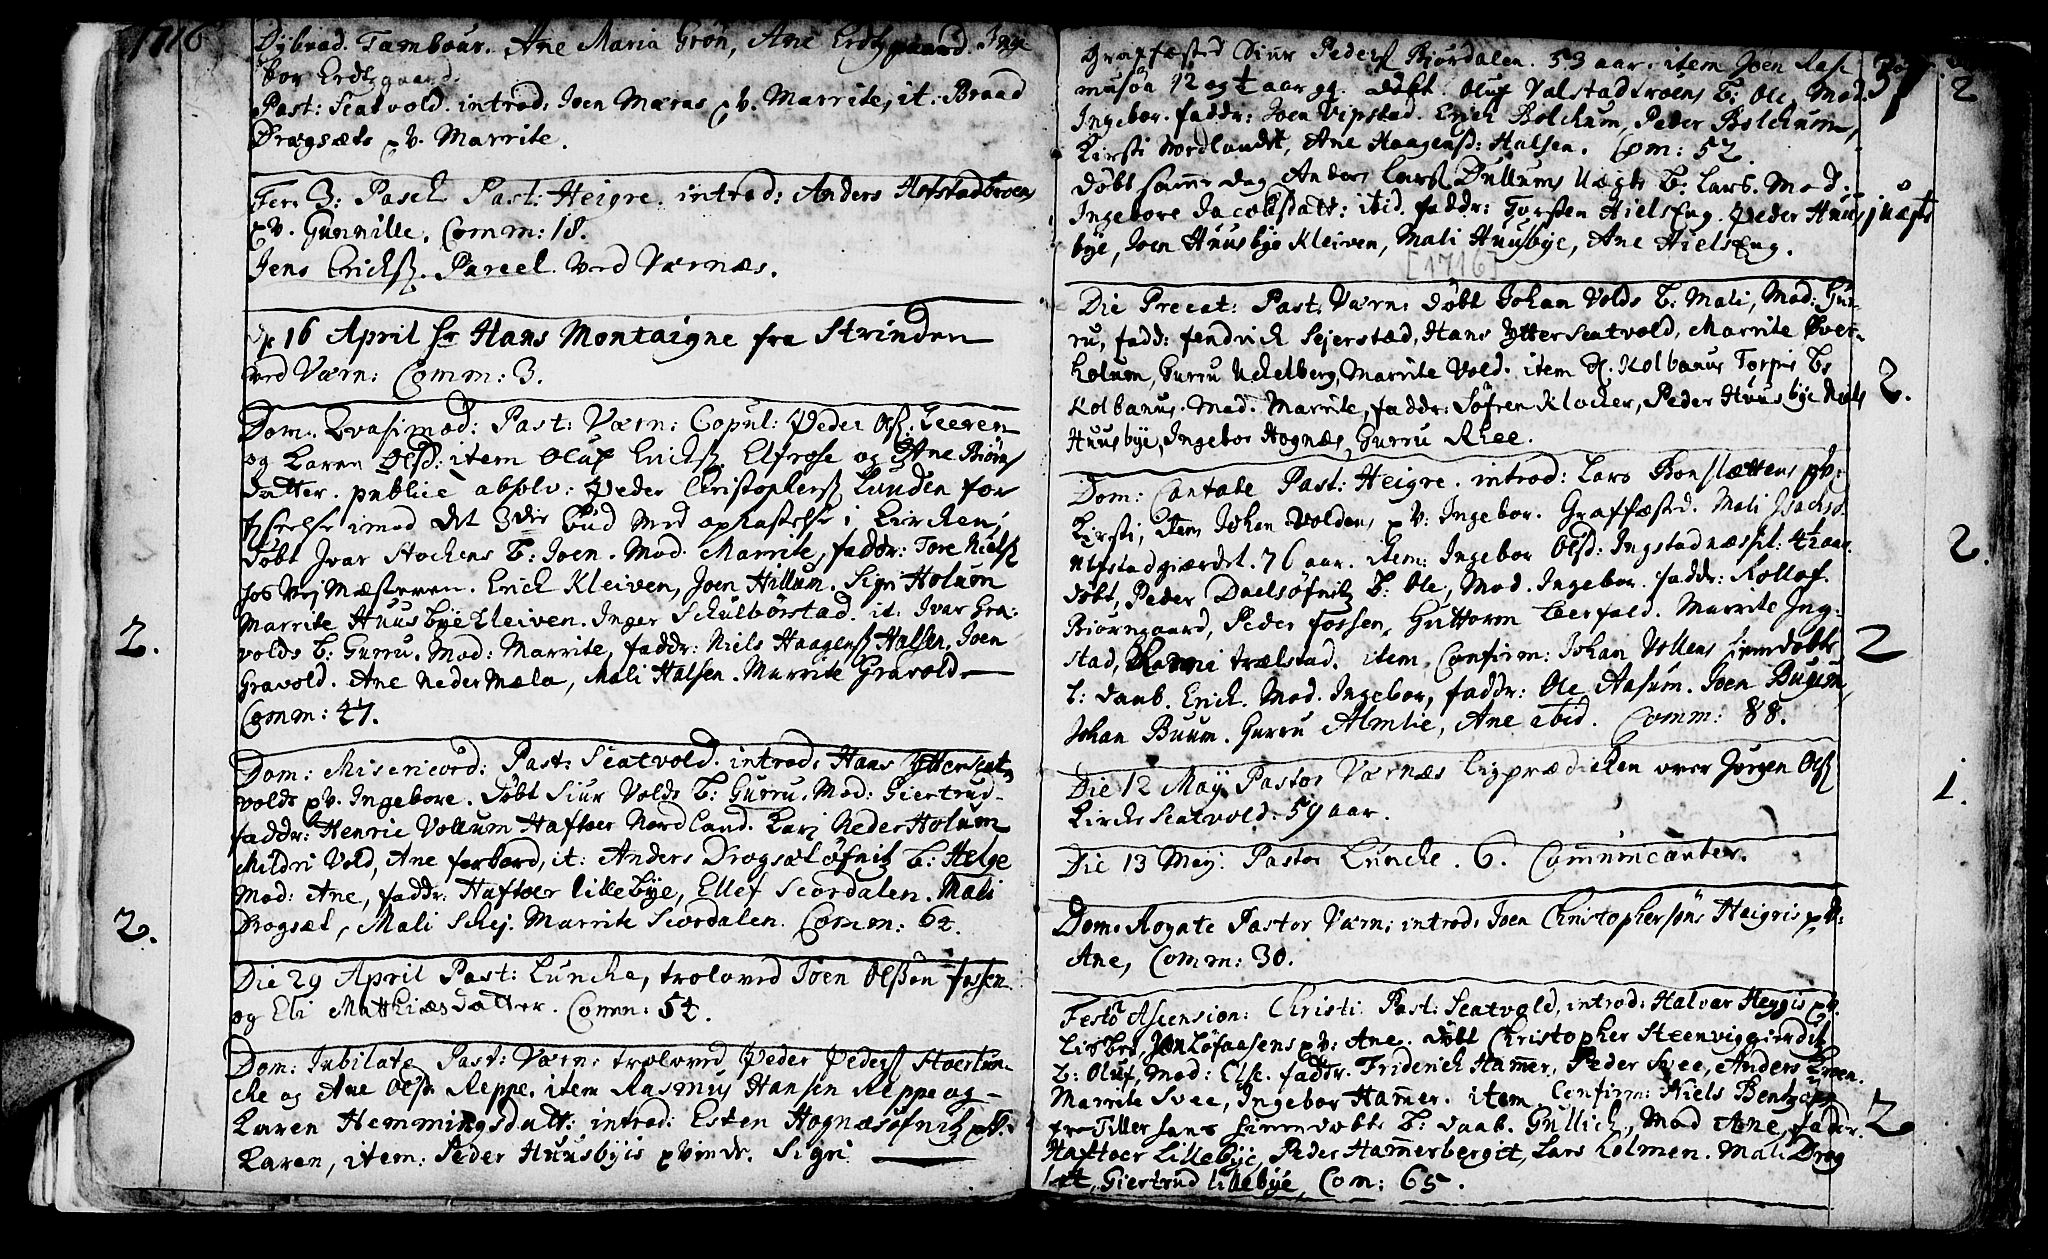 1716
Dybvad. Tambour. Ane Maria Grön, Ane Erdtzgaard. Inge
bor Erdtzgaard.
Past: Scatvold. introd: Joen Mæraas pV. Marrite, it: Braad
Dragsæts pV. Marrite.
Fer. 3: Pasch Past: Heigre. introd: Anders Hofstadtroen
pV. Gunnille. Comm: 18.
Jens Ericks. Pareel. ved Værnæs.
16 April Hr Hans Montaigne fra Strinden
ved Værn: Comm: 3.
Dom. Qvasimod: Past: Værn: Copul: Peder Ols. Leeren
og Karen Olsd: item Oluf Ericks. Elfrose og Ane Biörns
datter. publicè absolv: Peder Christophers Lunden for
forseelse imod det 3die bud med opkastelse i Kircken,
döbt Ivar Stockens B: Joen. Mod: Marrite, faddr: Tore Niels
hos Vej Mæsteren. Erich Kleiven, Joen Hillum. Sigri Holum
Marrite Huusbye Kleiven. Inger Schulbörstad. it: Ivar Gra-
volds B: Gurru. Mod: Marrite, faddr: Niels Haagens Halsen, Joen
Gravold. Ane Neder Mæla, Mali Halsen. Marrite Gravold
Comm: 47.
2.
Dom: Misericord: Past: Scatvold. introd: Hans Ytterscat-
volds pV. Ingebore. döbt Siur Volds B: Gurru. Mod: Giertrud
faddr: Henric Vollum Haftoer Nordland. Kari Neder Holum
Mildri Vold, Ane forbord, it: Anders Drogsæt öfnitz B: Helge
Mod: Ane, faddr: Haftoer Lillebye, Ellef Scordalen. Mali
Drogsæt, Mali Schej. Marrite Scordalen. Comm: 62.
2.
Die 29 April Past: Luncke, troloved Joen Olssön fossen
og Eli Matthiæsdatter. Comm: 54.
Dom: Jubilate Past: Værn: troloved Peder Peders Stoerlun-
cke og Ane Olsd. Reppe. item Rasmus Hansen Reppe og
Karen Hemmingsdatt: introd: Esten Hognæsöfnitz pV.
Karen, item: Peder Huusbyis pVindr. Sigri
Graffæsted Siur Peders Biördalen. 53 aar. item Joen Ras-
musön 12 og ½ aar gl. döbt Oluf Valstadtroens B: Ole, Mod.
Ingebor. faddr: Joen Vipstad. Erich Bolckum, Peder Bolckum,
Kirsti Nordlandt, Ane Haagensd: Halsen. Com: 52.
döbt samme dag Anders Lars Dullums Uægte B: Lars. Mod.
Ingebore Jacobsdatt: ibid. faddr: Torsten Hielseng. Peder Huus-
bye, Joen Huusbye Kleiven, Mali Huusbye, Ane Hielseng.
37
2
j uægte
[1716]
Die Precat: Past: Værn: döbt Johan Volds B: Mali, Mod: Gur-
ru, fadd: fendrich Sejerstad, Hans Ytterscatvold, Marrite Över-
kolum, Gurru Uckelberg, Marrite Vold. item Kolbanus Torpis B:
Kolbanus. Mod. Marrite, faddr: Söfren Klocker, Peder Huusbye Niels
Huusbye, Ingebor Hognæs, Gurru Rhee.
2.
Dom: Cantate Past: Heigre. introd: Lars Bonslættens pV:
Kirsti, item Johan Voldens pV: Ingebor. Graffæsted. Mali Isachsd.
Ulfstadgiærdet. 76 aar. item: Ingebor Olsd: Ingstadnæspl: 4½ aar.
döbt, Peder Daelsöfnitz B: Ole, Mod. Ingebor. faddr: Rollof.
Biörngaard, Peder fossen, Guttorm Leerfald. Marrite Ing-
stad, trælstad. item Confirm: Johan Vollens hiemdöbte
b: daab. Erich. Mod. Ingebor, faddr: Ole Aasum. Joen Buum,
Johan Buum. Gurru Almlie, Ane ibid. Comm: 88.
2.
2
Die 12 Maij Pastor Værnæs Ligprædicken over Jörgen Ols
Kircke Scatvold. 59 aar.
1.
Die 13 Maij. Pastor Luncke. 6. Comunicanter.
Dom. Rogate Pastor Værn: introd: Joen Christophersöns Heigris pV:
Ane, Comm: 30.
Festo Ascension: Christi Past: Scatvold, introd: Halvar Heggis pV.
Lisbet, Jon Löfaasens pV: Ane. döbt Christopher Steenviggierdit
B: Oluf, Mod: Else. faddr. Friderich Hamer, Peder Svee, Anders Kroen.
Marrite Svee, Ingebor Hamer. item. Confirm: Niels Bentzen
fra Tiller hans hiemdöbte B: daab. Gullich, Mod Ane, faddr.
Haftoer Lillebye, Peder Hamerbergit, Lars Kolmen. Mali Drog
sæt, Giertrud Lillebye, Com: 65.
2